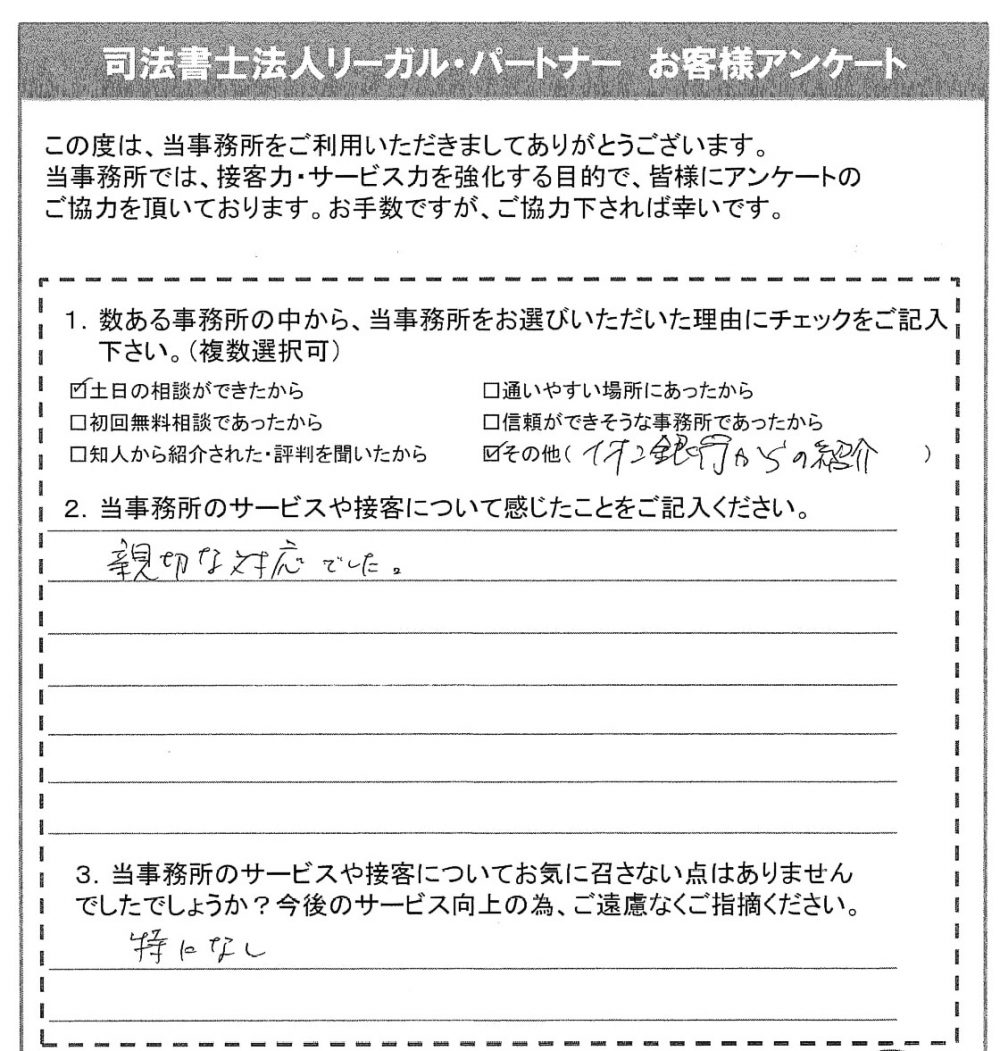 司法書士法人リーガル・パートナー お客様アンケート
この度は、当事務所をご利用いただきましてありがとうございます。
当事務所では、接客力・サービス力を強化する目的で、皆様にアンケートの
ご協力を頂いております。お手数ですが、ご協力下されば幸いです。
1. 数ある事務所の中から、当事務所をお選びいただいた理由にチェックをご記入
下さい。(複数選択可)
☑土日の相談ができたから □通いやすい場所にあったから
□初回無料相談であったから □信頼ができそうな事務所であったから
□知人から紹介された・評判を聞いたから ☑その他( イオン銀行からの紹介 )
2. 当事務所のサービスや接客について感じたことをご記入ください。
親切な対応でした。
3. 当事務所のサービスや接客についてお気に召さない点はありません
でしたでしょうか？今後のサービス向上の為、ご遠慮なくご指摘ください。
特になし